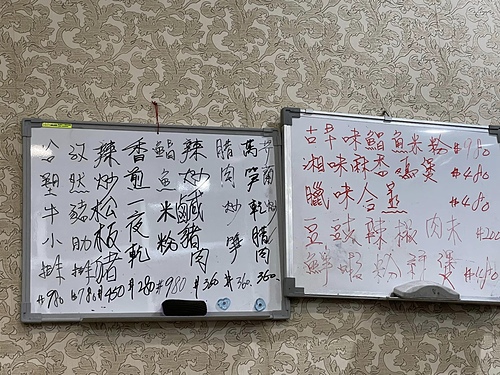 萵笋乾腊肉 360
腊肉炒笋 #360
辣炒鹹豬肉 #360
鯧魚米粉 #980
香煎一夜乾 #280
辣炒松板豬 #450
豬肋排 #780
牛小排 #980
古早味鯧魚米粉 #980
湘味麻香 煲 #480
臘味合蒸 #480
豆豉辣椒肉夫 #200
鮮蝦粉絲煲